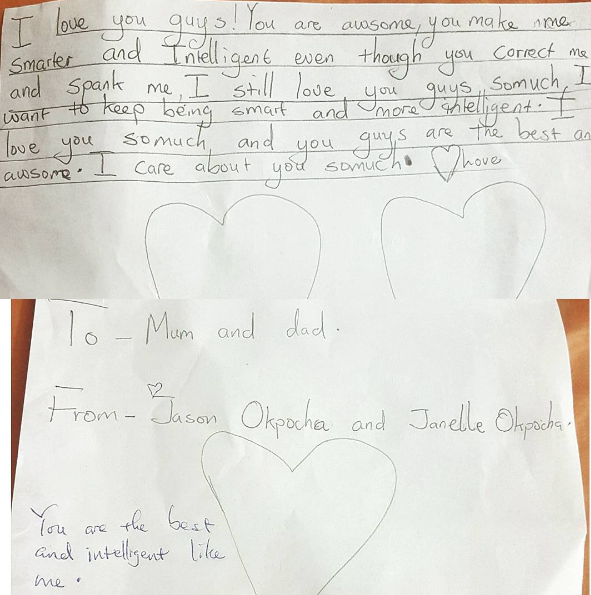 I love you guys! You are awsome, you make me
smarter and Intelligent even though you correct me
and spank me, I still love you guys somuch, I
want to keep being smart and more intelligent. I
love you somuch, and you guys are the best an
awsome. I care about you somuch. love
To - Mum and dad.
From - Jason Okpocha and Janelle Okpocha.
You are the best
and intelligent like
me.